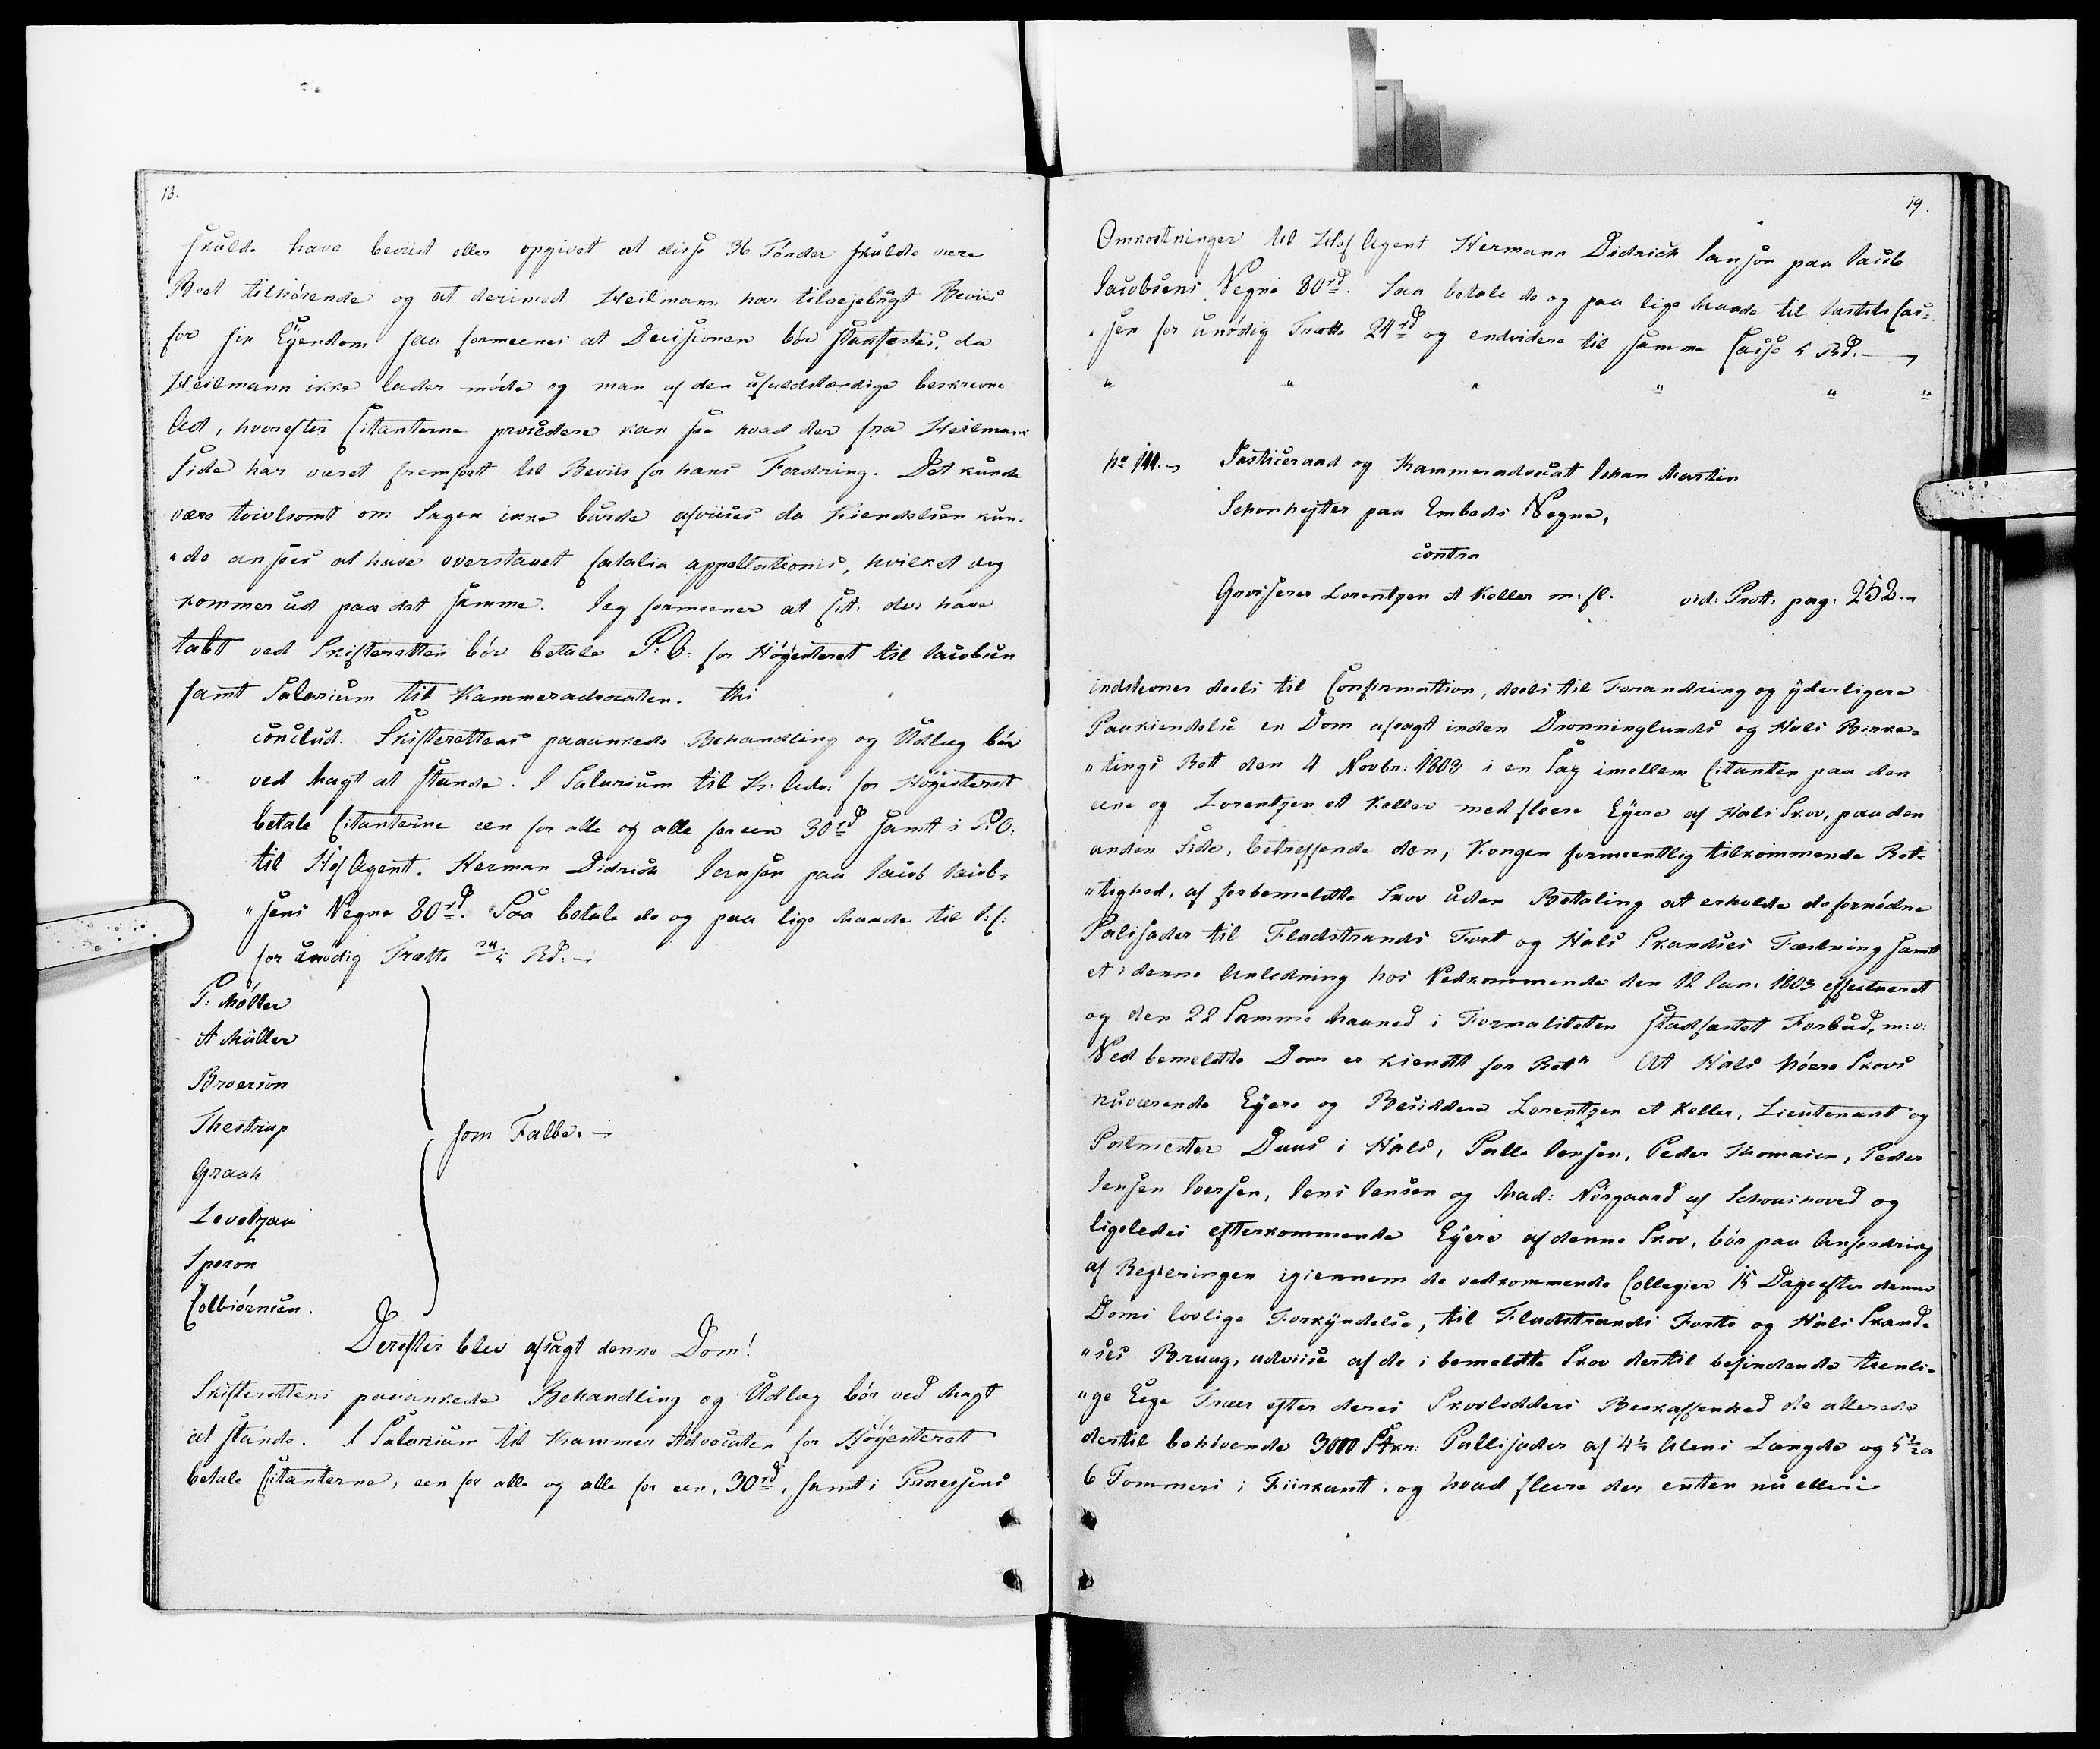 13.
skulde have beviist eller opgivet at disse 36 Tønder skulde være
Boet tilhørende og at derimod Heilmann har tilvejebragt Beviis
for sin Eÿendom saa formeenes at Decisionen bør stadfæstes, da
Heilmann ikke lader møde og man af den ufuldstændige beskrevne
Act, hvorefter Citanterne procedere kan see hvad der fra Heilmans
Side har været fremført til Beviis for hans Fordring. Det kunde
være tvivlsomt om Sagen ikke burde afviises da Kiendelsen kun-
"de ansees at have oversta​aet fatalia appellationis, hvilket dog
kommer ud paa det samme. Jeg formeener at Cit: der have
tabt ved Skifteretten bør betale P: O: for Høÿesteret til Jacobsen
samt Salarium til Kammeradvocaten. thi
conclud: Skifterettens paaankede Behandling og Udlæg bør
ved Magt at stande. I Salarium til K: Adv: for Høÿesteret
betale Citanterne een for alle og alle for een 30 rd samt i P: O:
til Hof Agent. Herman Didrich Jansen paa Jacob Jacob-
"sens Vegne 80 rd. Saa betale de og paa lige Maade til J: C:
for unødig Trætte 24 Rd. -
P: Møller
A Müller
Broerson
Thestrup
Graah
Levetzau
som Falbe. -
Speron
Colbiørnsen.
Derefter blev afsagt denne Dom!
Skifterettens paaankede Behandling og Udlæg bør ved Magt
at stande. I Salarium til Kammer Advocaten for Høÿesteret
betale Citanterne, een for alle og alle for een, 30 rd, samt i Processens
19.
Omkostninger til Hof Agent Hermann Didrich Jansøn paa Jacob
Jacobsens Vegne 80 rd. Saa betale de og paa lige Maade til Justits Cas-
"sen for unødig Trætte 24 rd og endvidere til samme Casse 5 Rd. -
" " " " " "
No 141. - Justiceraad og Kammeradvocat Johan Martin
Schønhejter paa Embeds Vegne,
contra
Grosserer Lorentzen et Koller m: fl. vid: Prot: pag: 252. -
indstevner deels til Confirmation, deels til Forandring og ÿderligere
Paakiendelse en Dom afsagt inden Dronninglunds og Hals Birke-
"tings Ret den 4 Novbr: 1803 i en Sag imellem Citanten paa den
eene og Lorentzen et Koller med fleere Eÿere af Hals Skov, paa den
anden Side, betreffende den, Kongen formeentlig tilkommende Ret-
"tighed, af forbemeldte Skov uden Betaling at erholde de fornødne
Palisader til Fladstrands Fort og Hals Skandses Fæstning samt
et i denne Anledning hos Vedkommende den 12 Jan: 1803 effectueret
og den 22 Samme Maaned i Formaliteten stadfæstet Forbud, m: v:
Ved bemeldte Dom er kiendt for Ret" At Hals Nørre Skovs
nuværende Eÿere og Besiddere Lorentzen et Koller, Lieutenant og
Postmester Duus i Hals, Palle Jensen, Peder Thomasen, Peder
Jensen Iversen, Jens Jensen og Mad: Nørgaard af Schoushoved og
ligeledes efterkommende Eÿere af denne Skov, bør paa Anfordring
af Regieringen igiennem de vedkommende Collegier 15 Dage efter denne
Doms lovlige Forkÿndelse, til Fladstrands Forts og Hals Skand-
"ses Brug, udviise af de i bemeldte Skov dertil befindende tienli-
"ge Eege Træer efter deres Skovlodders Beskaffenhed de allerede
dertil behøvende 3000 Stkr: Pallisader af 4½ Alens Længde og 5½ a
6 Tommers i Fiirkant, og hvad fleere der enten nu eller i